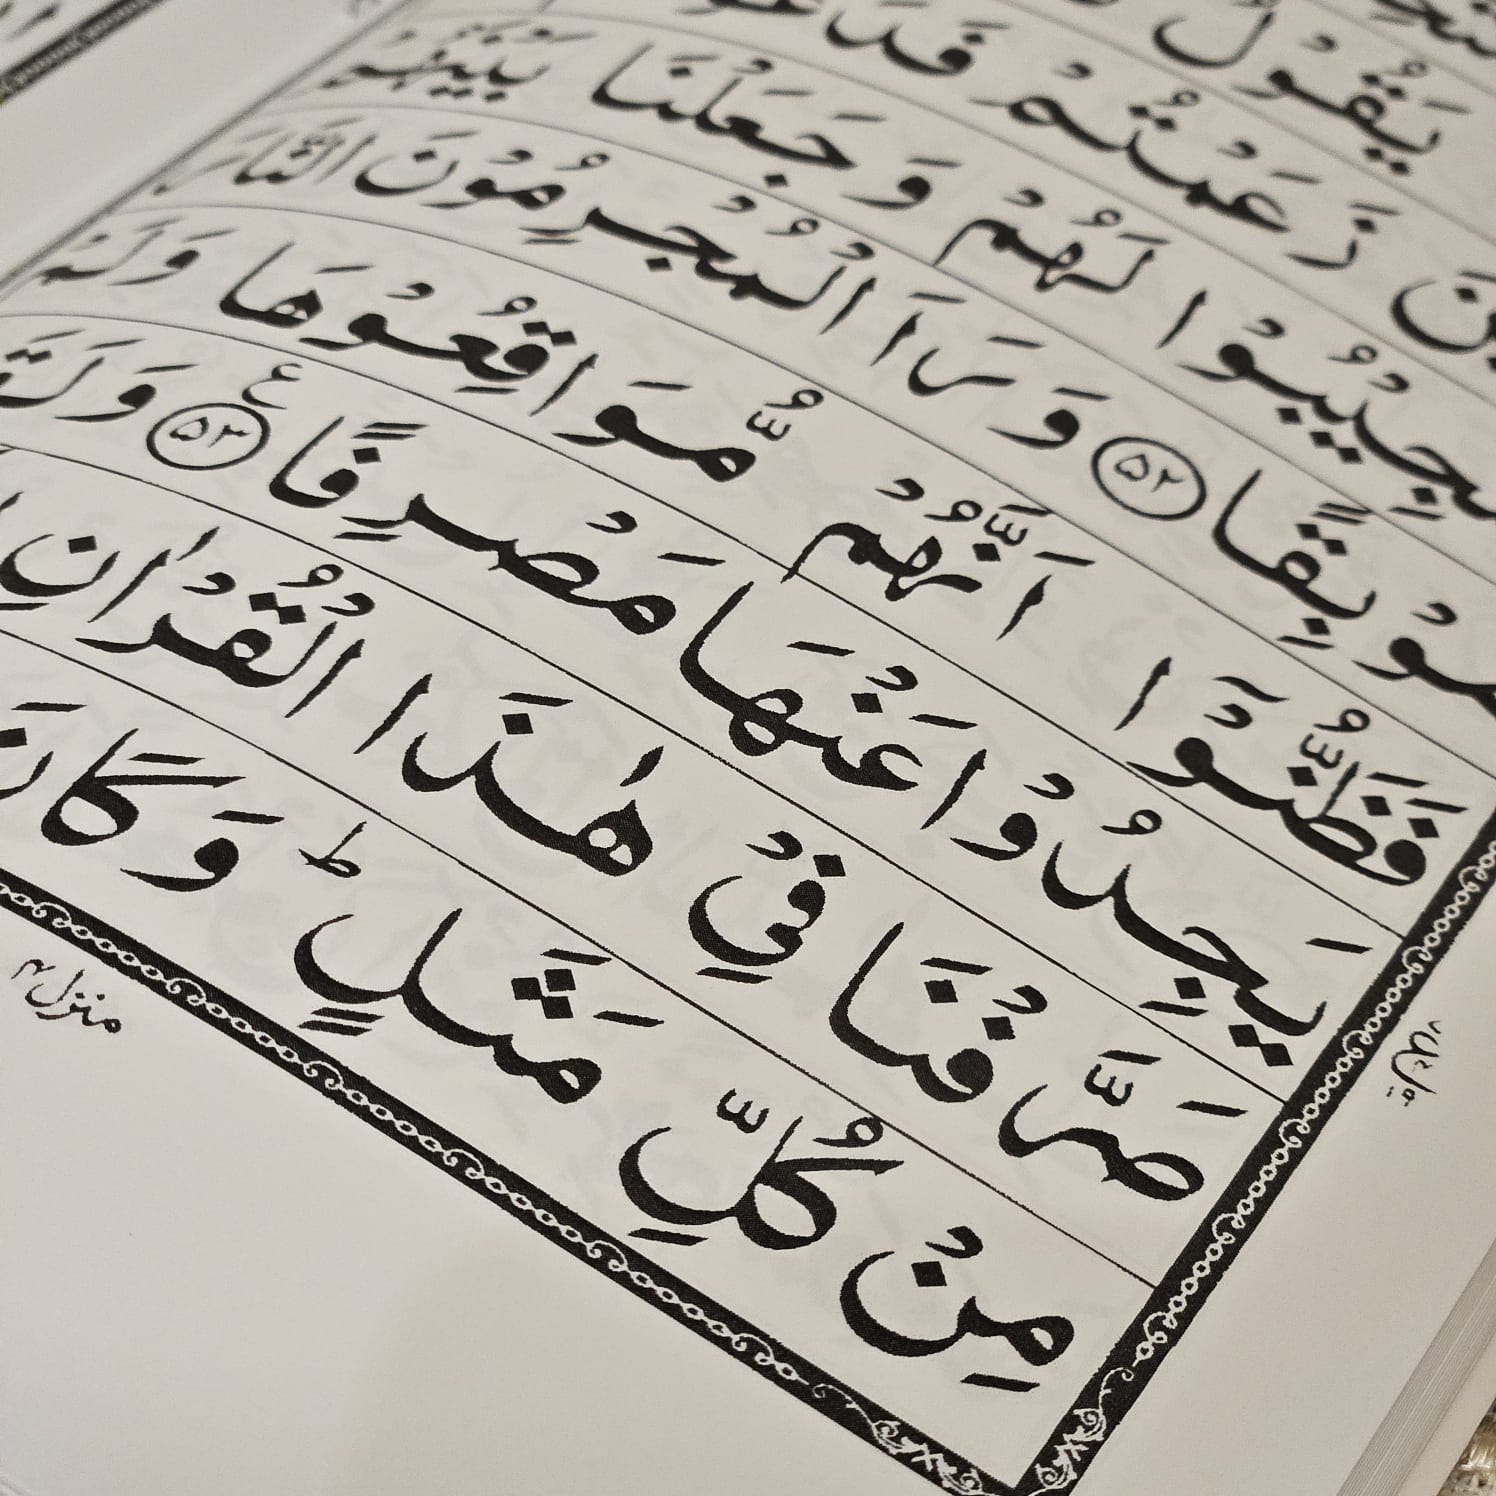 يَقُوۡلُ
يۡنَ زَعَمۡتُمۡ فَدَعَوۡ
جِيۡبُوۡا لَهُمۡ وَجَعَلۡنَا بَيۡنَهُمۡ
مَّوۡبِقًا ۵۲ وَرَاَ الۡمُجۡرِمُوۡنَ النَّارَ
فَظَنُّوۡۤا اَنَّهُمۡ مُّوَاقِعُوۡهَا وَلَمۡ
يَجِدُوۡا عَنۡهَا مَصۡرِفًا ۵۳ ع وَلَقَ
صَرَّفۡنَا فِىۡ هٰذَا الۡقُرۡاٰنِ
مِنۡ كُلِّ مَثَلٍ ؕ وَكَانَ
منزل ۴